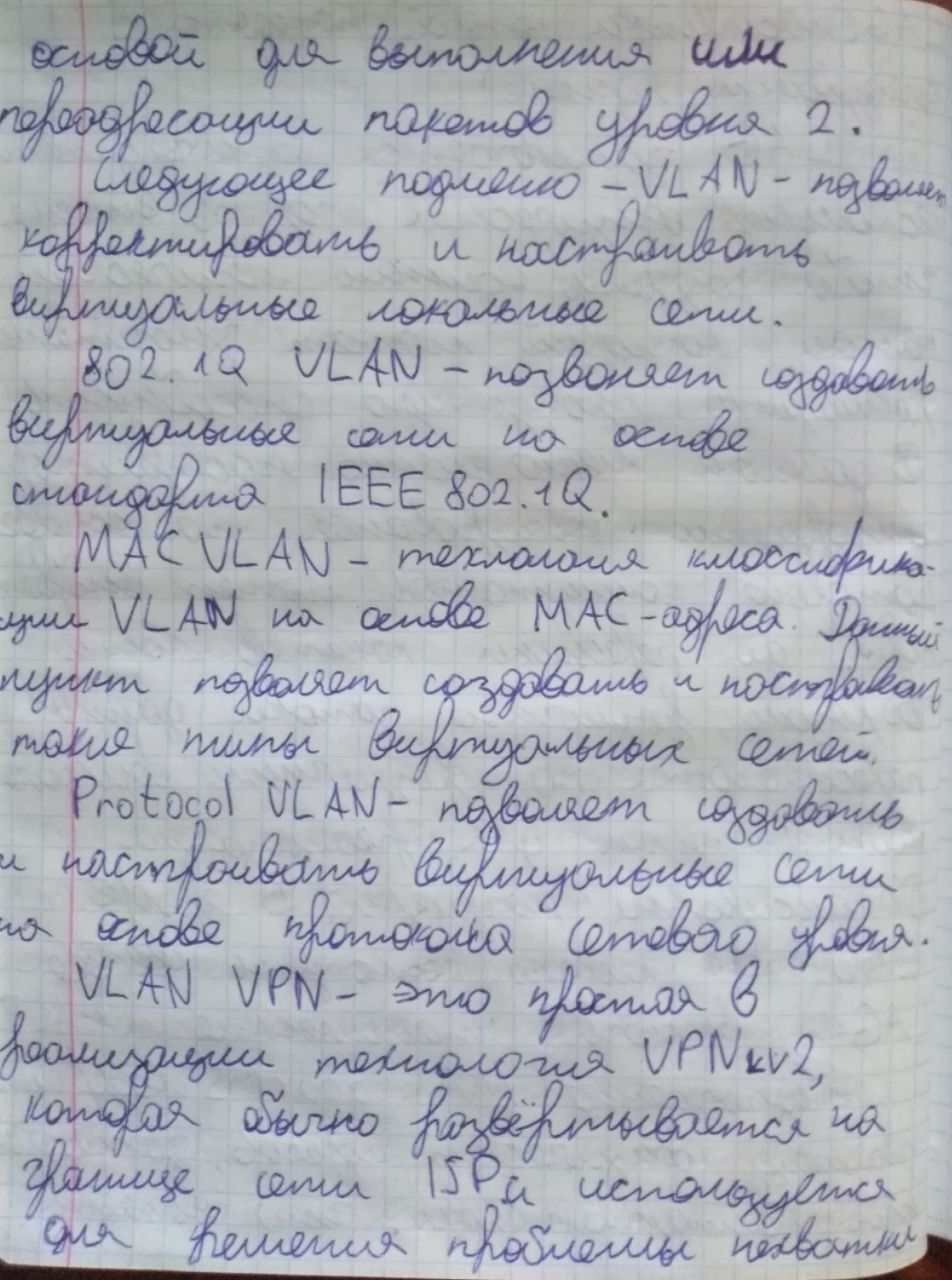 основой для выполнения или
переадресации пакетов уровня 2.
Следующее подменю – VLAN – позволяет
корректировать и настраивать
виртуальные локальные сети.
802.1Q VLAN – позволяет создавать
виртуальные сети на основе
стандарта IEEE 802.1Q.
MAC VLAN – технология классифика-
ции VLAN на основе MAC-адреса. Данный
пункт позволяет создавать и настраивать
такие типы виртуальных сетей.
Protocol VLAN – позволяет создавать
и настраивать виртуальные сети
на основе протокола сетевого уровня.
VLAN VPN – это простая в
реализации технология VPN
которая обычно развёртывается на
границе сети ISP и используется
для решения проблемы нехватки